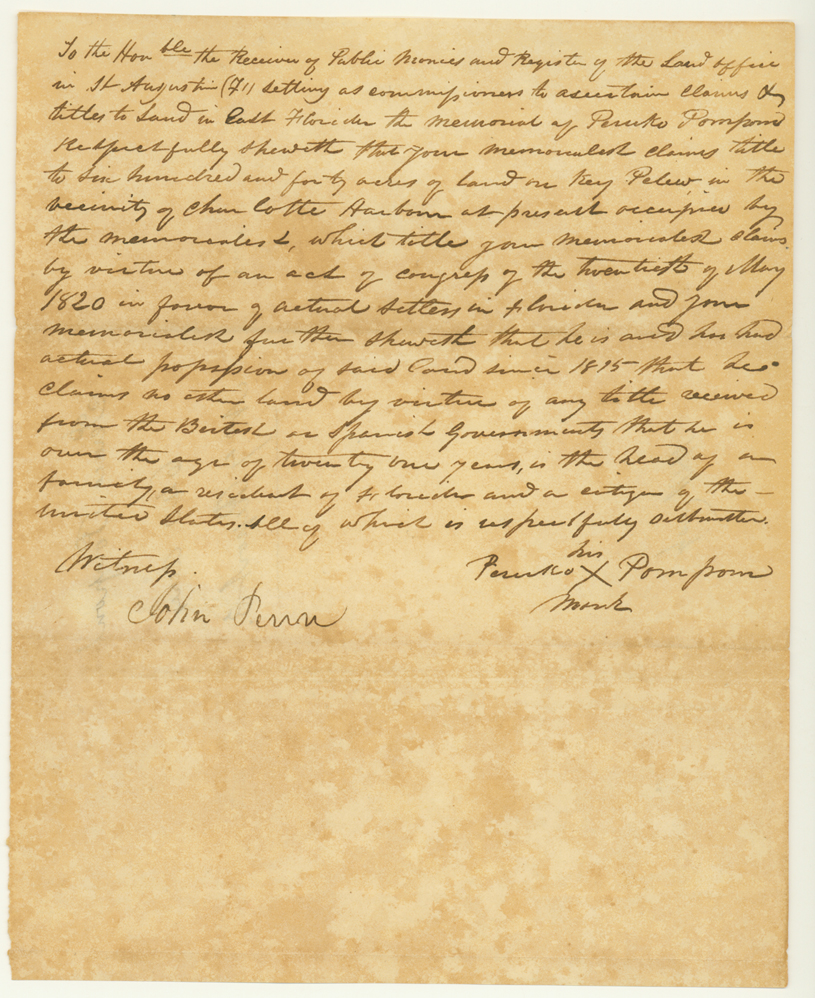 To the Honble the Receiver of Public Monies and Register of the Land office
in St Augustin (Fl) setting as commissioners to ascertain claims &
titles to Land in East Florida the memorial of Peruko Pompom
Respectfully sheweth that your memorialist claims title
to six hundred and forty acres of land on Key Pelew, in the
vecinity of Charlotte Harbour at present occupied by
the memorialist, which title your memorialist claims
by virtue of an act of congress of the twentieth of May
1820 in favor of actual settlers in Florida and your
memorialist further sheweth that he is and has had
actual possession of said land since 1815 that he
claims no other land by virtue of any title received
from the British or Spanish Governments that he is
over the age of twenty one years, is the head of a
family, a resident of Florida and a citizen of the
United States. All of which is respectfully submitted.
his
Witness. Peruko X Pompom
mark
John